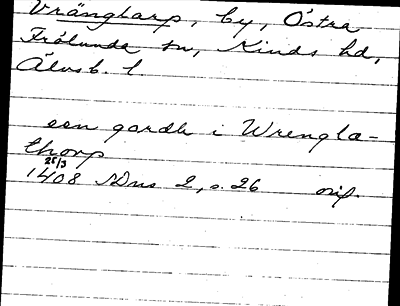 Vrängtarp, by, Östra
Frölunda sn, Kinds hd,
Älvsb. l.
een gardh i Wrengla-
thorp
25/3
1408 SDns 2, s. 26 orig.